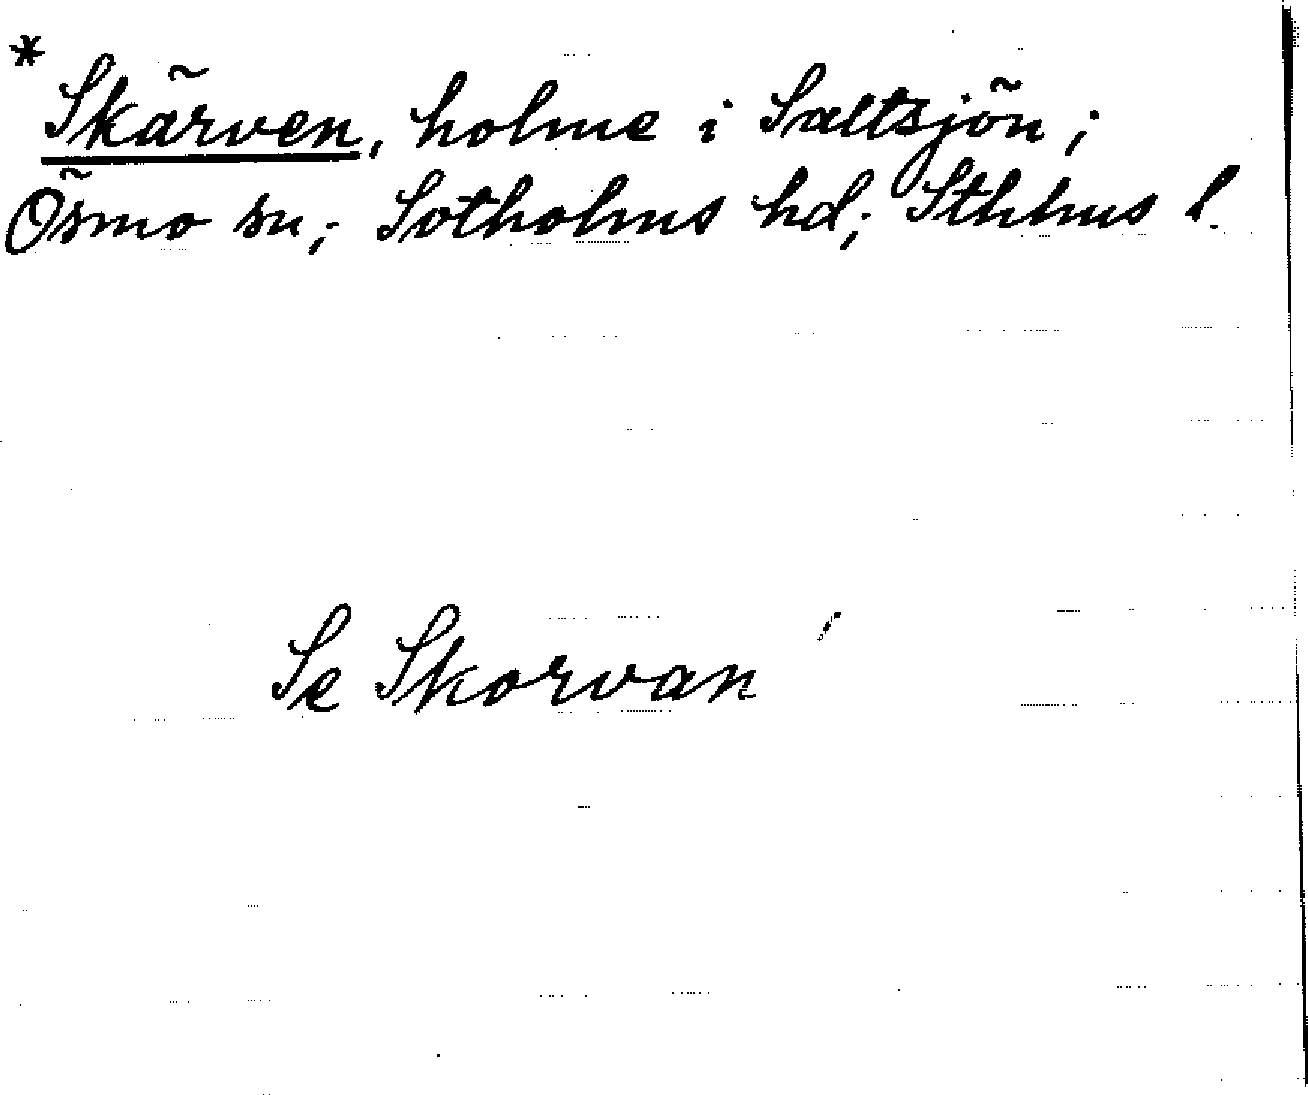 * Skärven, holme i Saltsjön;
Ösmo sn; Sotholms hd; Sthlms l.
Se Skorvan